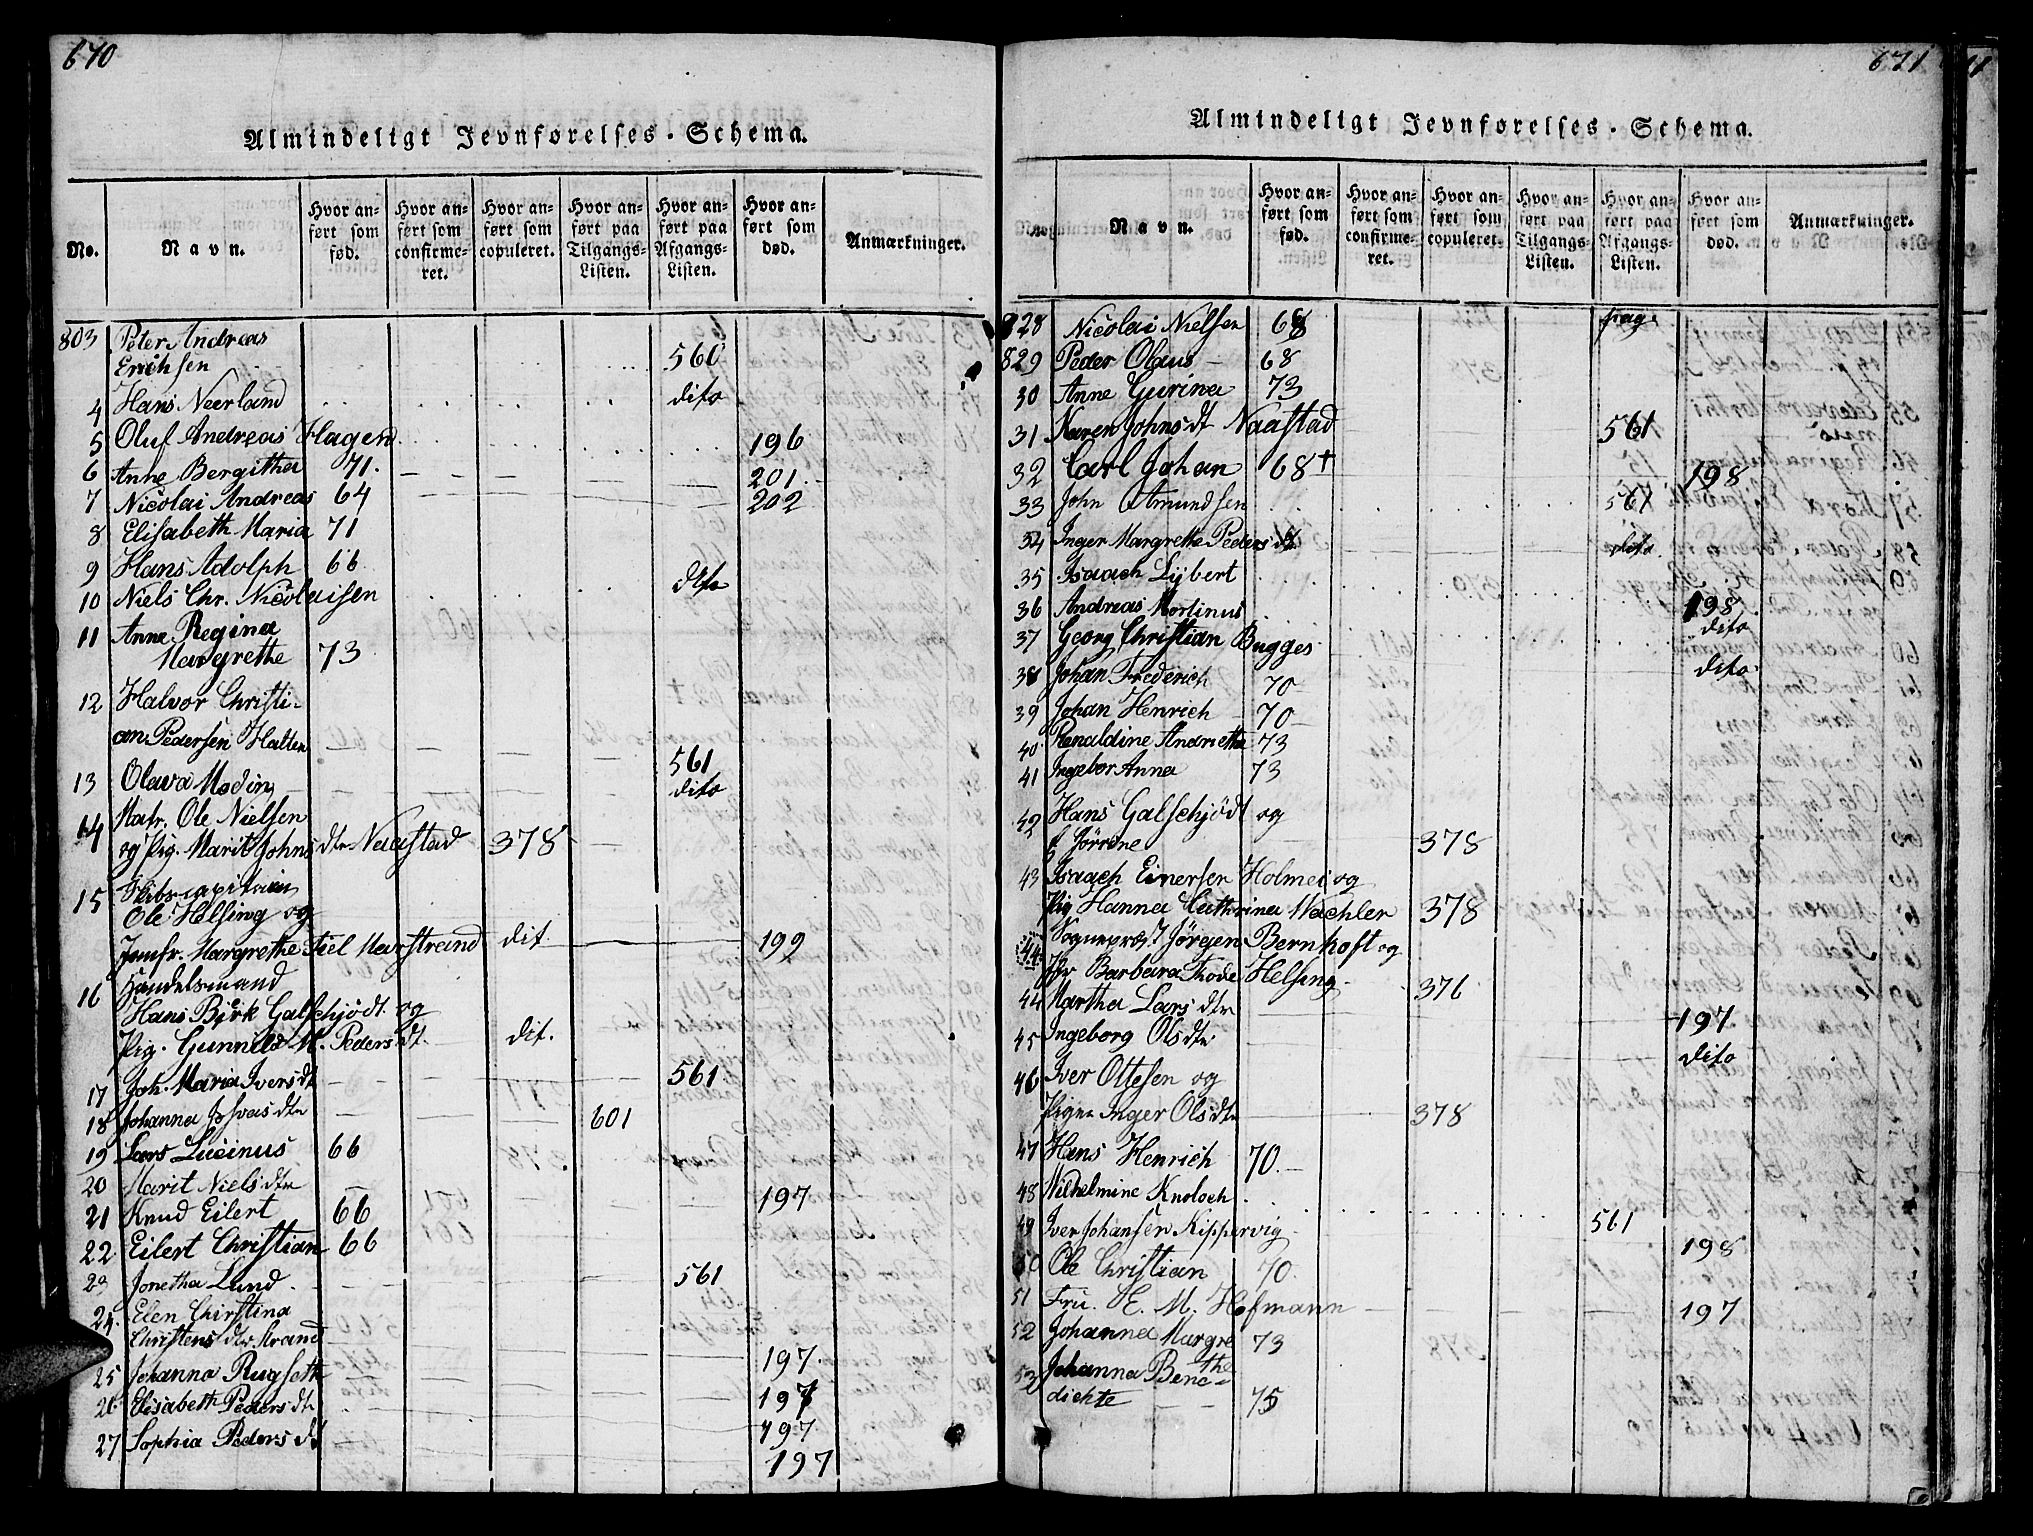 670
Almindeligt Jevnførelses-Schema.
No. Navn. Hvor anført som fød. Hvor anført som confirmeret. Hvor anført som copuleret. Hvor anført paa Tilgangs-Listen. Hvor anført paa Afgangs-Listen. Hvor anført som død. Anmærkninger.
803 Peter Andreas
Erichsen 560
4 Hans Neerland dito
5 Oluf Andreas Hagen 196
6 Anne Bergitha 71. 201
7 Nicolai Andreas 64 202
8 Elisabeth Maria 71
9 Hans Adolph 66
10 Niels Chr. Nicolaisen dito
11 Anne Regina
Margrethe 73
12 Halvor Christi-
an Pedersen Halten 561
13 Olava Modin dito
14 Matr. Ole Nielsen
og Pig. Marit Johnsdtr Naastad 378
15 Skibscapitain
Ole Helsing og
Jomfr. Margrethe Fiel Marstrand dit. 199
16 Handelsmand
Hans Birk Galschjödt og
Pig. Gunnild M. Pedersdt. dit.
17 Joh. Maria Iversdt 561
18 Johanna Josvasdtr 601
19 Lars Lucinus 66
20 Marit Nielsdtr 197
21 Knud Eilert 66
22 Eilert Christian 66
23 Jonetha Lund 561
24. Elen Chirstina
Christensdtr Strand 197.
25 Johanna Rugseth 197
26 Elisabeth Pedersdt 197
27 Sophia Pedersdt 197
671
Almindeligt Jevnførelses-Schema.
Navn. Hvor anført som fød. Hvor anført som confirmeret. Hvor anført som copuleret. Hvor anført paa Tilgangs-Listen. Hvor anført paa Afgangs-Listen. Hvor anført som død. Anmærkninger.
pag.
828 Nicolai Nielsen 68
829 Peder Olaus 68
30 Anne Gurina 73
31 Karen Johnsdt Naastad 561
32 Carl Johan 68+ 198
33 John Amundsen 561
34 Inger Margrethe Pedersdt dito
35 Isaach Lybert
36 Andreas Mortinus 198
37 Georg Christian Bugges dito
38 Johan Frederich 70 dito
39 Johan Henrich 70
40 Renaldine Andrietha 73
41 Ingebor Anna 73
42 Hans Galschjödt og
Jörrine 378
43 Isaach Einersen Holmei og
Pig Hanna Cathrina Wachler 378
44 Sognepræst Jörgen Bernhoft og
Jfr Barbara Thode Helsing 376
44 Martha Larsdtr 197
45 Ingeborg Olsdtr dito
46 Iver Ottesen og
Pigen Inger Olsdtr 378
47 Hans Henrich 70.
48 Wilhelmine Knoloch 561
49 Iver Johansen Kippervig 198
50 Ole Christian 70.
51 Fru. E. M. Hofmann 197
52 Johanna Margre
the 73
53 Johanna Bene-
dichte 75